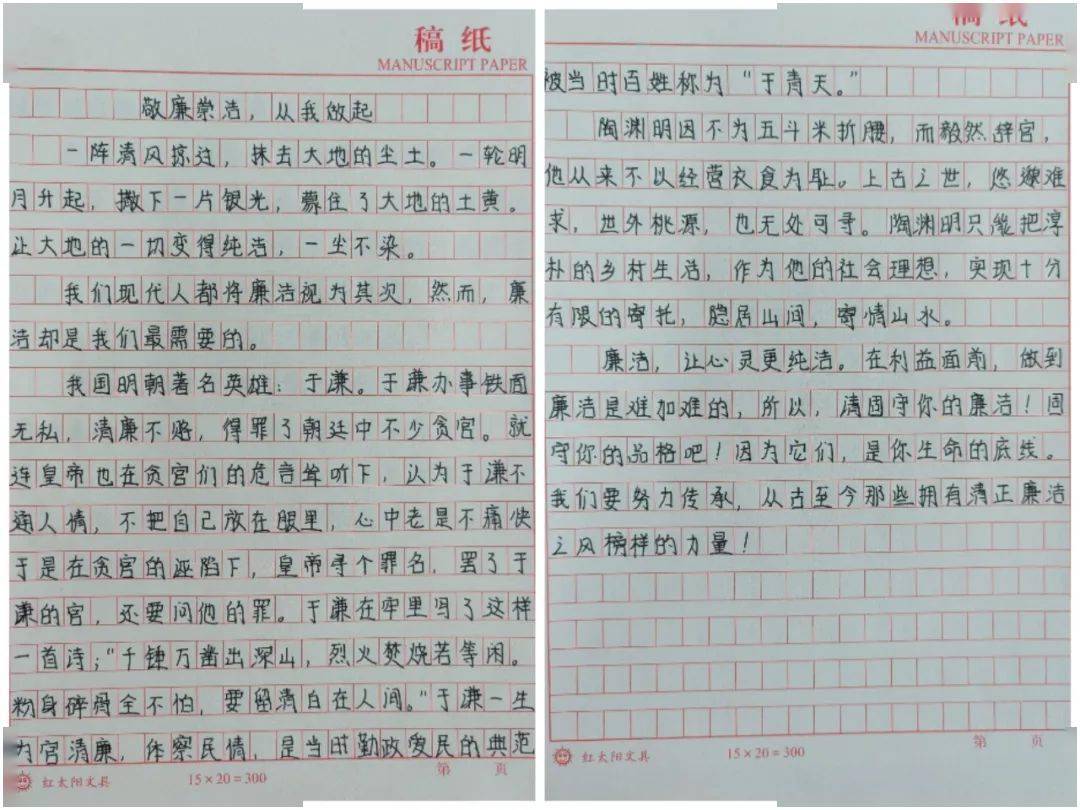 稿纸
MANUSCRIPT PAPER
敬廉崇洁，从我做起
一阵清风掠过，抹去大地的尘土。一轮明
月升起，撒下一片银光，蒙住了大地的土黄。
让大地的一切变得纯洁，一尘不染。
我们现代人都将廉洁视为其次，然而，廉
洁却是我们最需要的。
我国明朝著名英雄：于谦。于谦办事铁面
无私，清廉不赂，得罪了朝廷中不少贪官。就
连皇帝也在贪官们的危言耸听下，认为于谦不
通人情，不把自己放在眼里，心中老是不痛快
于是在贪官的诬陷下，皇帝寻个罪名，罢了于
谦的官，还要问他的罪。于谦在牢里写了这样
一首诗；“千锤万凿出深山，烈火焚烧若等闲。
粉身碎骨全不怕，要留清白在人间。”于谦一生
为官清廉，体察民情，是当时勤政爱民的典范
红太阳文具 15×20=300 第 页
稿纸
MANUSCRIPT PAPER
被当时百姓称为“于青天。”
陶渊明因不为五斗米折腰，而毅然辞官，
他从来不以经营衣食为耻。上古之世，悠邈难
求，世外桃源，也无处可寻。陶渊明只能把淳
朴的乡村生活，作为他的社会理想，实现十分
有限的寄托，隐居山间，寄情山水。
廉洁，让心灵更纯洁。在利益面前，做到
廉洁是难加难的，所以，请固守你的廉洁！固
守你的品格吧！因为它们，是你生命的底线。
我们要努力传承，从古至今那些拥有清正廉洁
之风榜样的力量！
红太阳文具 15×20=300 第 页